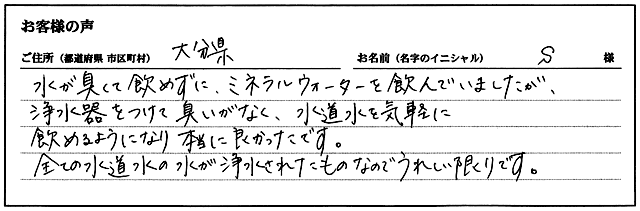 お客様の声
ご住所（都道府県 市区町村） 大分県 お名前（名字のイニシャル） S 様
水が臭くて飲めずに、ミネラルウォーターを飲んでいましたが、
浄水器をつけて臭いがなく、水道水を気軽に
飲めるようになり本当に良かったです。
全ての水道水の水が浄水されたものなのでうれしい限りです。